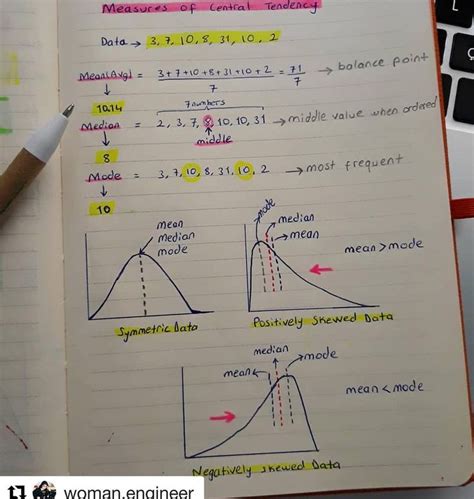 Measures of Central Tendency
Data → 3, 7, 10, 8, 31, 10, 2
Mean(Avg) = 3+7+10+8+31+10+2 / 7 = 71 / 7 → balance point
↓
10.14
7 numbers
Median = 2, 3, 7, 8, 10, 10, 31 → middle value when ordered
↓ middle
8
Mode = 3, 7, 10, 8, 31, 10, 2 → most frequent
↓
10
mean
median
mode
Symmetric Data
mode
median
mean
mean > mode
Positively Skewed Data
median
mode
mean
mean < mode
Negatively Skewed Data
woman.engineer